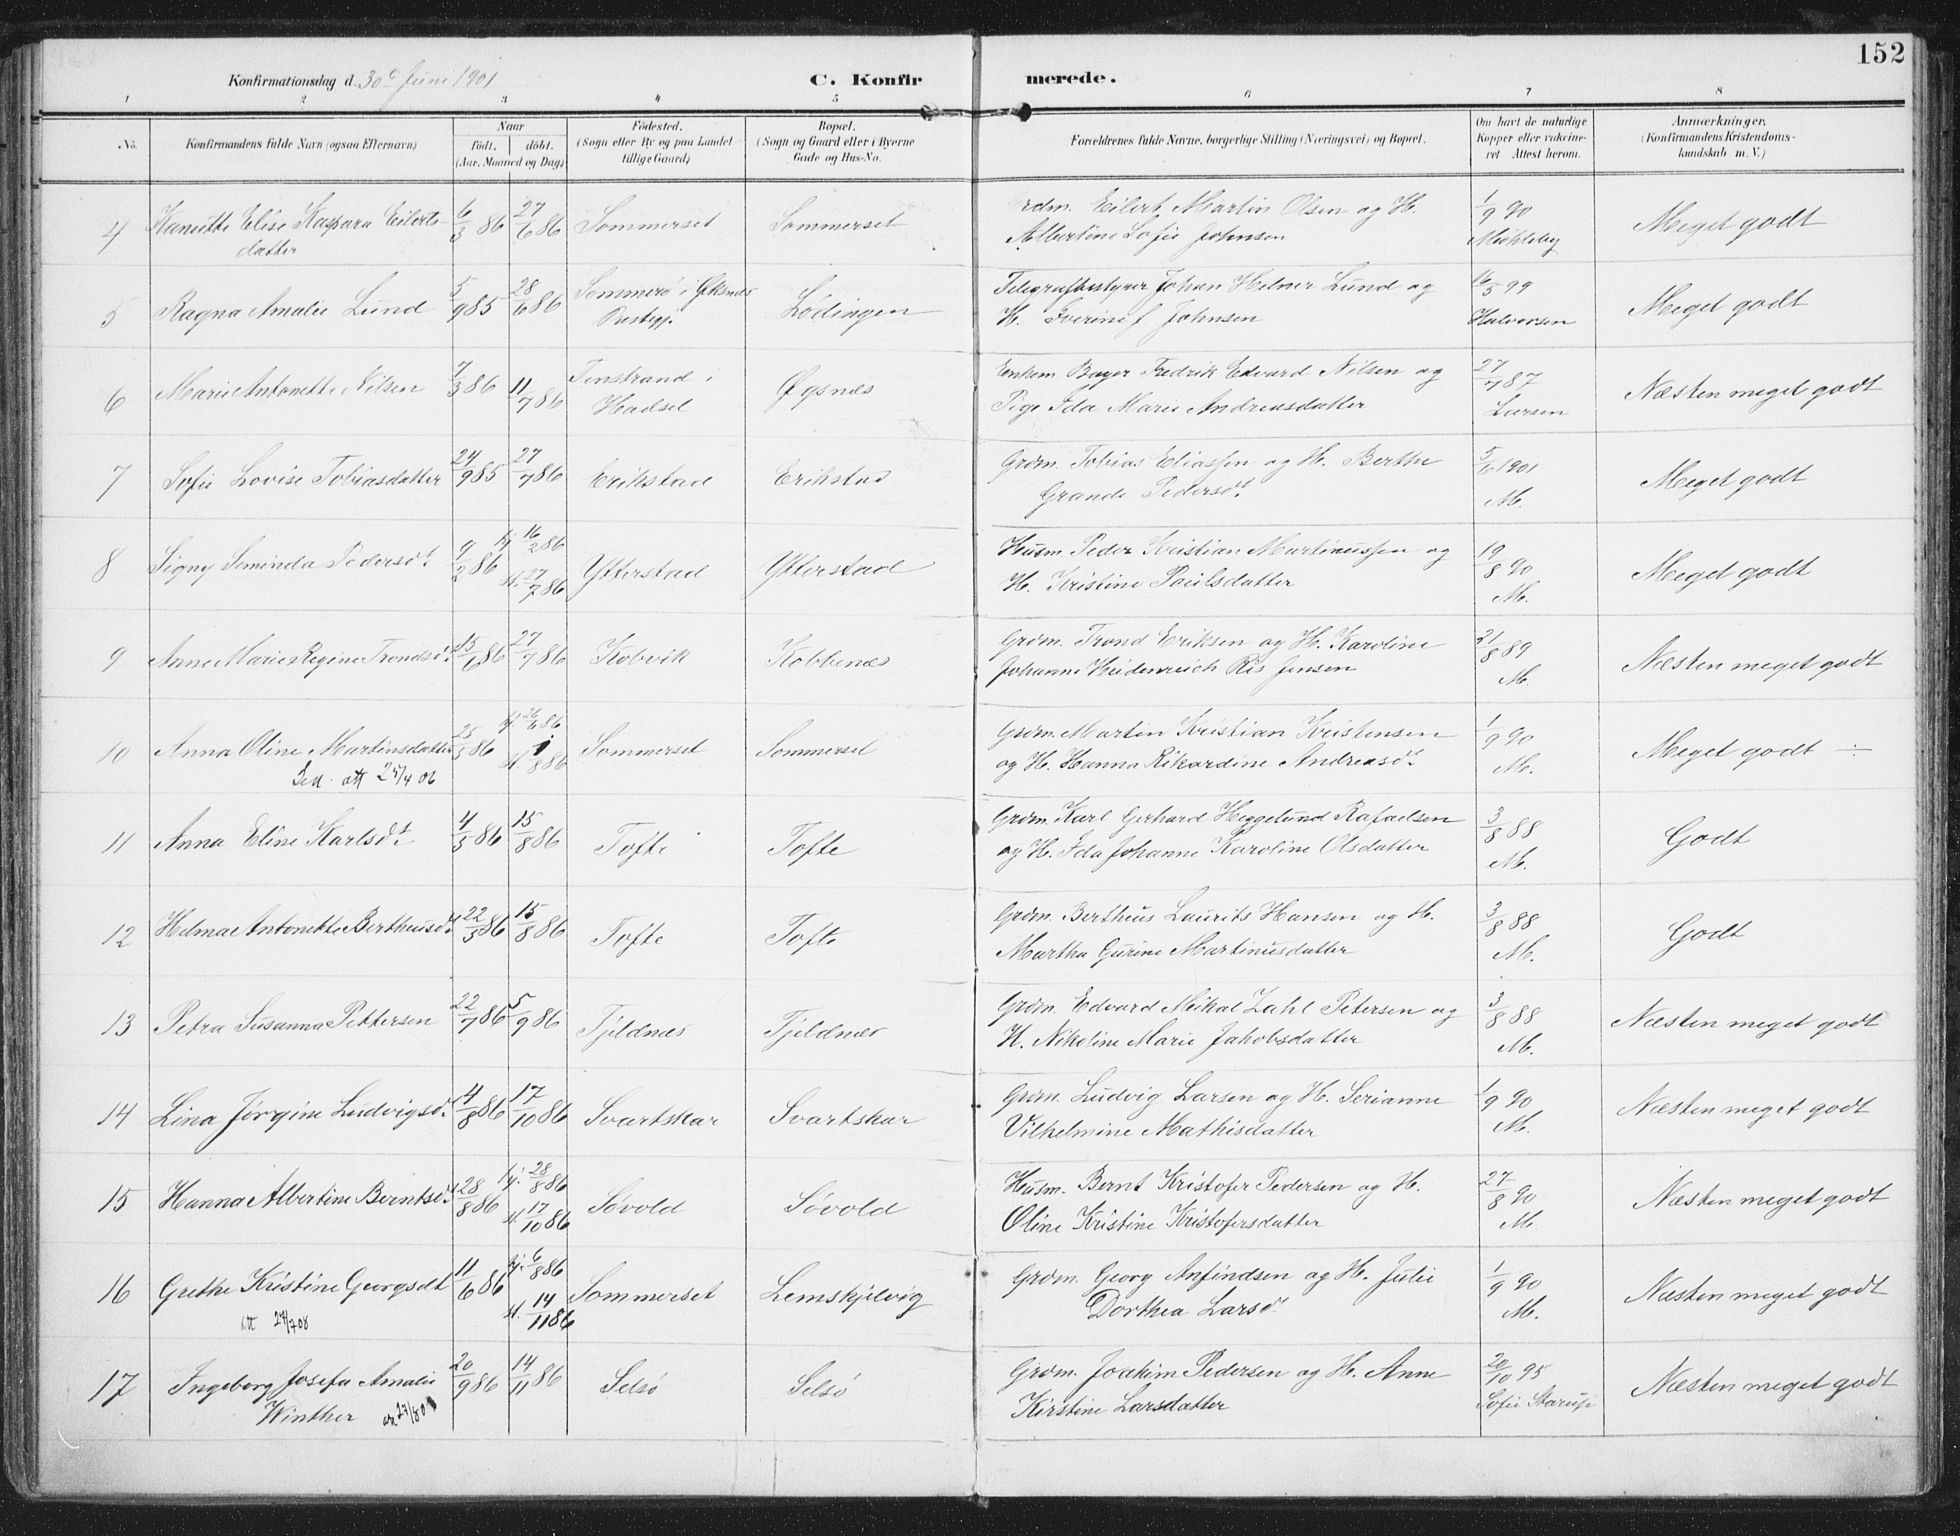 152
Konfirmationsdag d. 30te Juni 1901
C. Konfirmerede.
1 2 3 4 5 6 7 8
No. Konfirmandens fulde Navn (ogsaa Efternavn) Naar født. døbt. (Aar, Maaned og Dag) Fødested. (Sogn eller By og paa Landet tillige Gaard) Bopæl. (Sogn og Gaard eller i Byerne Gade og Hus-No. Forældrenes fulde Navne, borgerlige Stilling (Næringsvei) og Bopæl. Om havt de naturlige Kopper eller vakcineret. Attest herom. Anmærkninger. (Konfirmandens Kristendomskundskab m. V.)
4 Hanutte Elise Kaspara Eilerts- 6/3 86 27/6 86 Sommerset Sommerset Grdm. Eilert Martin Olsen og H. 1/9 90 Meget godt
datter Albertine Sofie Johnsen
5 Ragna Amalie Lund 5/9 85 28/6 86 Sommerø i Øksnes Lødingen Telegrafbestyrer Johan Helmer Lund og 16/5 99 Meget godt
Præstegj. H. Johnsen Halvorsen
6 Marie Antonette Nilsen 7/3 86 11/7 86 Finstrand i Øgsnæs Enkem. Bayer Fredrik Edvard Nilsen og 27/7 87 Næsten meget godt
Hadsel Pige Ida Marie Andreasdatter Larsen
7 Sofie Lovise Tobiasdatter 24/9 85 27/7 86 Erikstad Erikstad Grdm. Tobias Eliassen og H. Berthe 5/6 1901 Meget godt
Grande Pedersdt. M.
8 Signy Seminda Pedersdt. 9/2 86 hj. 16/2 86 Ytterstad Ytterstad Husm. Peder Kristian Martinussen og 19/8 90 Meget godt
st. 27/7 86 H. Kristine Poulsdatter M.
9 Anne Marie Regine Trondsdt. 15/6 86 27/7 86 Kobvik Kobbenæs Grdm. Trond Eriksen og H. Karoline 21/8 89 Næsten meget godt
Johanne Heidenreich Ris Jensen M.
10 Anna Oline Martinsdatter 25/5 86 hj. 26/6 86 Sommerset Sommerset Grdm. Martin Kristian Kristensen 1/9 90 Meget godt ÷
att 25/4 06 st. 1/8 86 og H. Hanna Rikardine Andreasdt. M.
11 Anna Eline Karlsdt. 4/5 86 15/8 86 Tofte Tofte Grdm. Karl Gerhard Heggelund Rafaelsen 3/8 88 Godt
og H. Ida Johanne Karoline Olsdatter M.
12 Helma Antonette Bertheusdt. 22/5 86 15/8 86 Tofte Tofte Grdm. Bertheus Laurits Hansen og H. 3/8 88 Godt
Martha Gurine Martinusdatter M.
13 Petra Susanna Pettersen 22/7 86 5/9 86 Tjeldnæs Tjeldnæs Grdm. Edvard Meikal Zahl Petersen og 3/8 88 Næsten meget godt
H. Nikoline Marie Jakobsdatter M.
14 Lina Jørgine Ludvigsdt. 4/8 86 17/10 86 Svartskar Svartskar Grdm. Ludvig Larsen og H. Serianne 1/9 90 Næsten meget godt
Vilhelmine Mathisdatter M.
15 Hanna Albertine Berntsdt. 28/8 86 hj. 28/8 86 Søvold Søvold Husm. Bernt Kristofer Pedersen og H. 27/8 90 Næsten meget godt
st. 17/10 86 Oline Kristine Kristofersdatter M.
16 Grethe Kristine Georgsdt 11/6 86 hj. 6/8 86 Sommerset Lemskjelvig Grdm. Georg Anfindsen og H. Julie 1/9 90 Næsten meget godt
att 27/7 08 st. 14/11 86 Dorthea Larsd. M.
17 Ingeborg Josefa Amalie 20/9 86 14/11 86 Selsø Selsø Grdm. Joakim Pedersen og H. Anne 20/10 95 Næsten meget godt
Winther Kirstine Larsdatter Sofie Starup